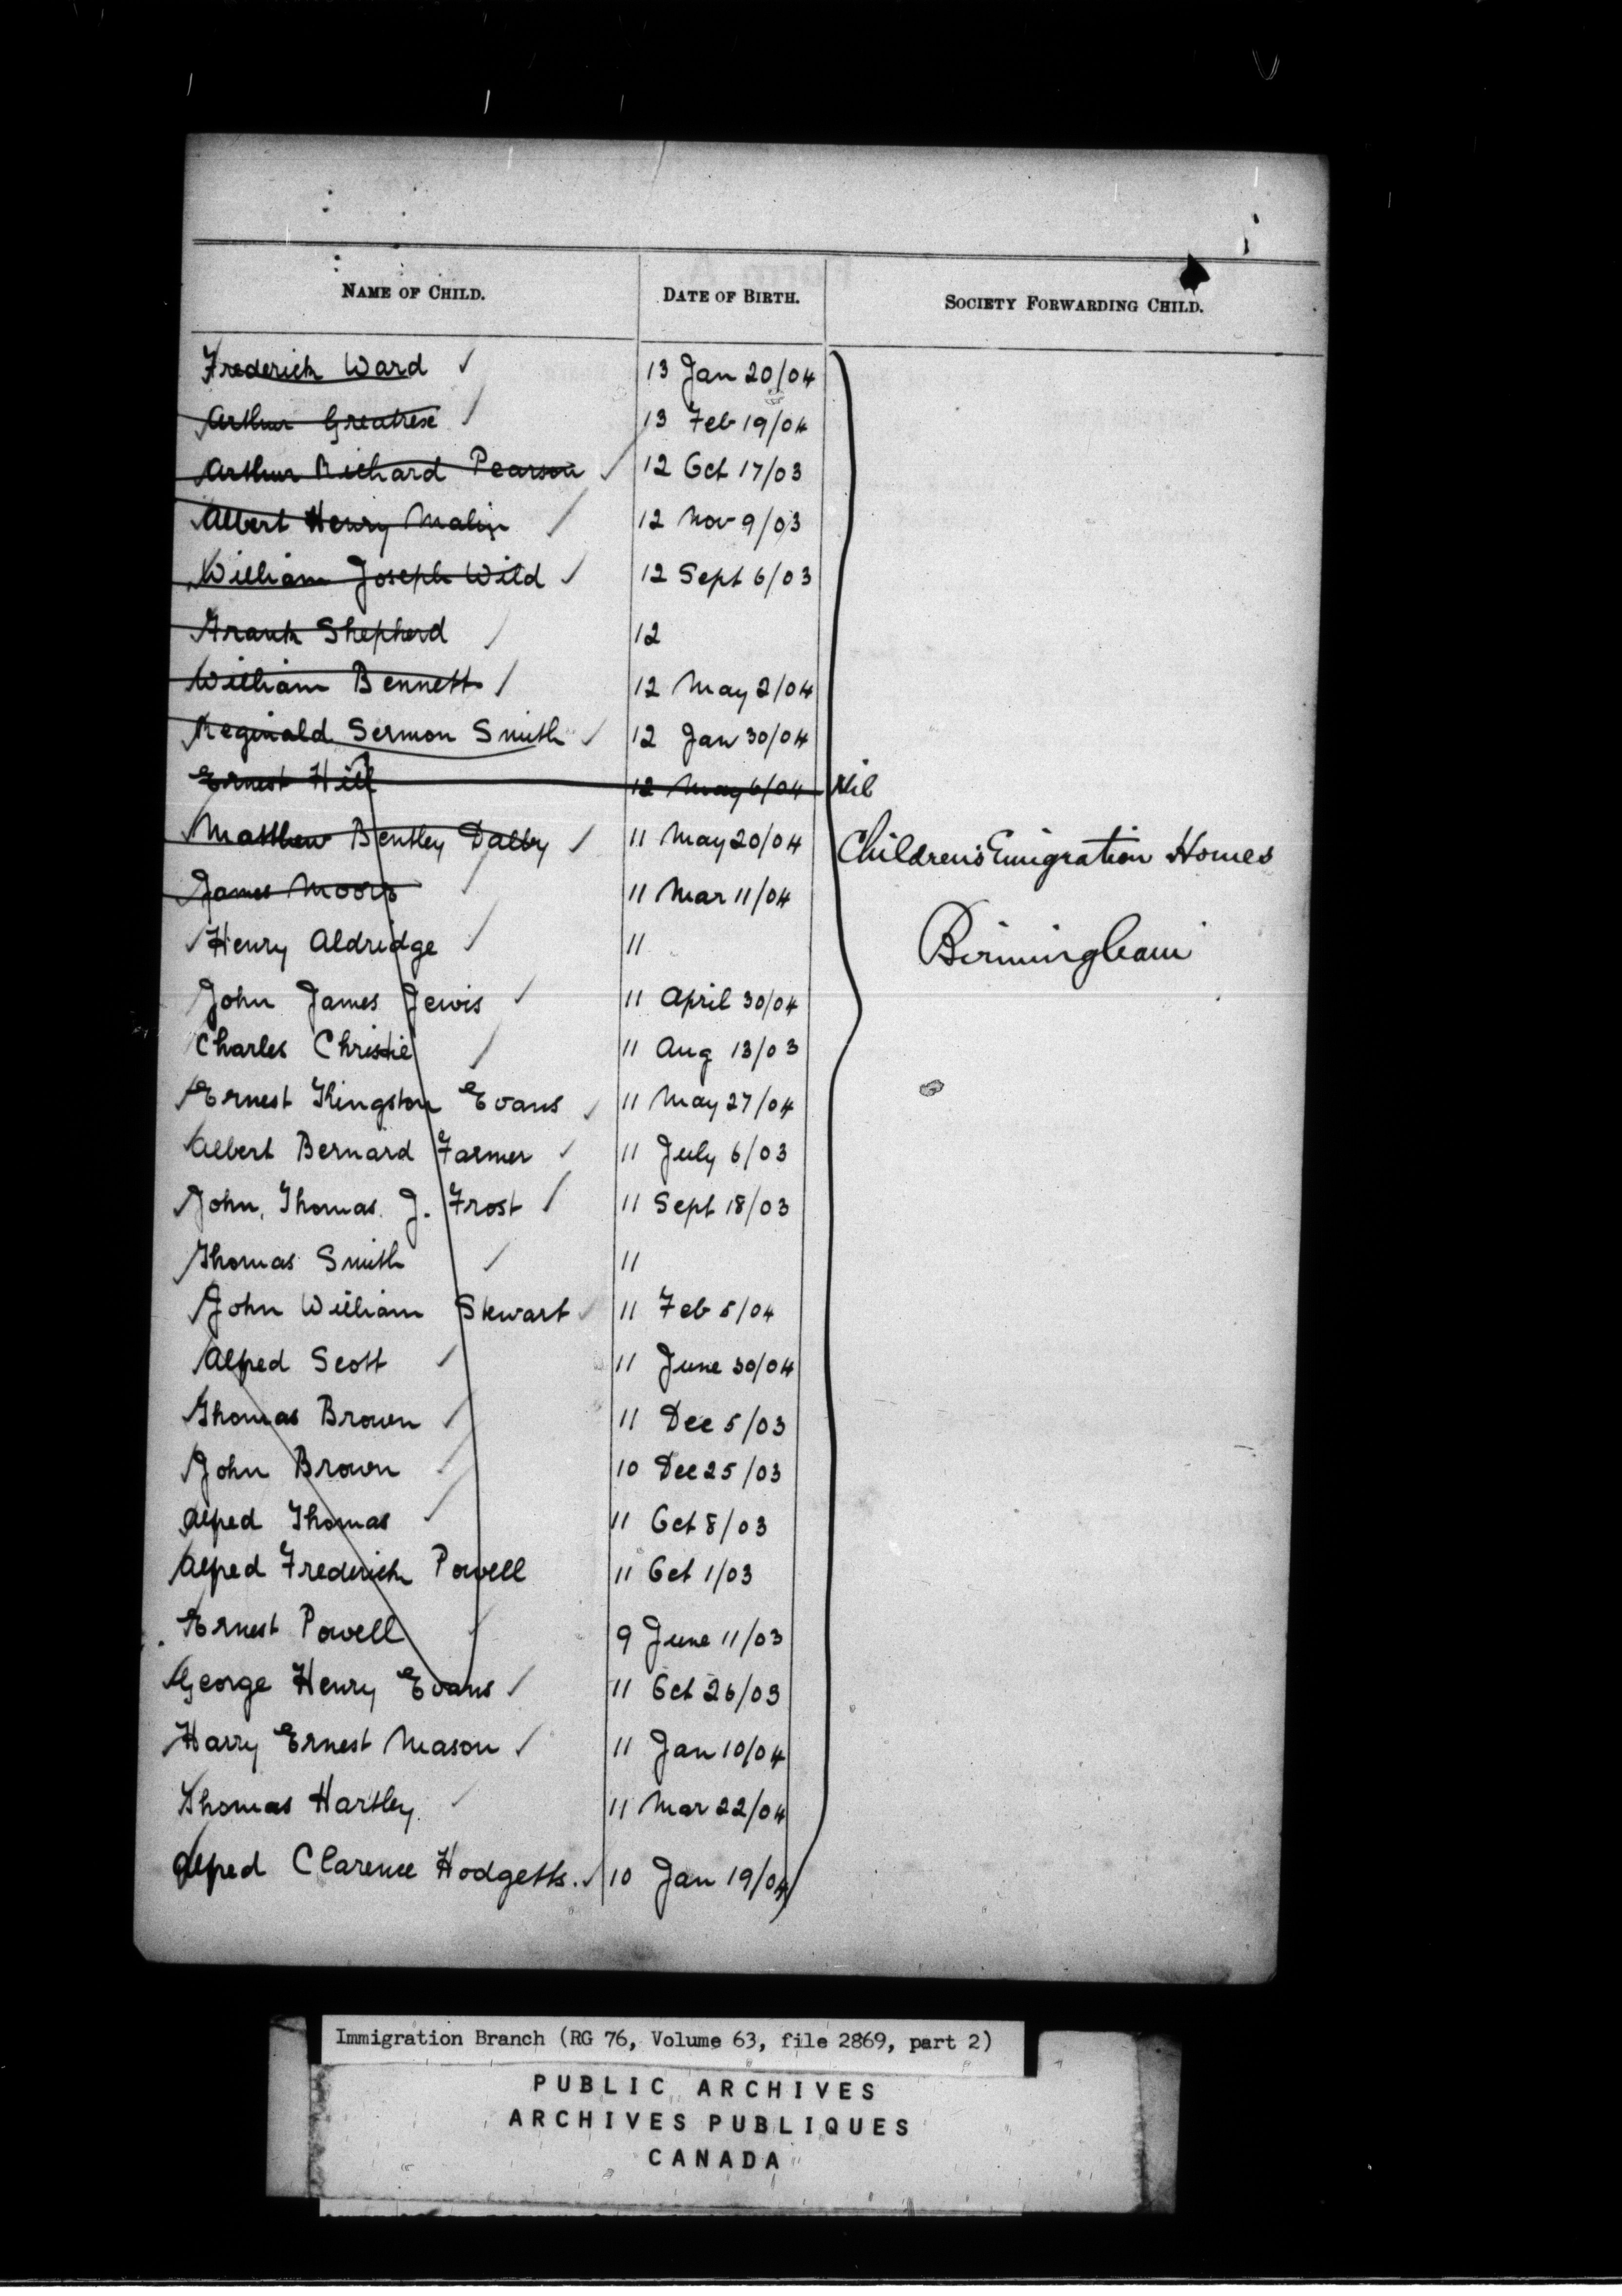 NAME OF CHILD. DATE OF BIRTH. SOCIETY FORWARDING CHILD.
Frederick Ward 13 Jan 20/04
Arthur Greatrex 13 Feb 19/04
Arthur Richard Pearson 12 Oct 17/03
Albert Henry Malin 12 Nov 9/03
William Joseph Wild 12 Sept 6/03
Frank Shepherd 12
William Bennett 12 May 2/04
Reginald Sermon Smith 12 Jan 30/04
Ernest Hill 12 May 6/04 Nil
Matthew Bentley Dalby 11 May 20/04
Children's Emigration Homes
James Moore 11 Mar 11/04
Henry Aldridge 11
Birmingham
John James Jewis 11 April 30/04
Charles Christie 11 Aug 13/03
Ernest Kingston Evans 11 May 27/04
Albert Bernard Farmer 11 July 6/03
John, Thomas. J. Frost 11 Sept 18/03
Thomas Smith 11
John William Stewart 11 Feb 5/04
Alfred Scott 11 June 30/04
Thomas Brown 11 Dec 5/03
John Brown 10 Dec 25/03
Alfred Thomas 11 Oct 8/03
Alfred Frederick Powell 11 Oct 1/03
Ernest Powell 9 June 11/03
George Henry Evans 11 Oct 26/03
Harry Ernest Mason 11 Jan 10/04
Thomas Hartley 11 Mar 22/04
Alfred Clarence Hodgetts. 10 Jan 19/04
Immigration Branch (RG 76, Volume 63, file 2869, part 2)
PUBLIC ARCHIVES
ARCHIVES PUBLIQUES
CANADA